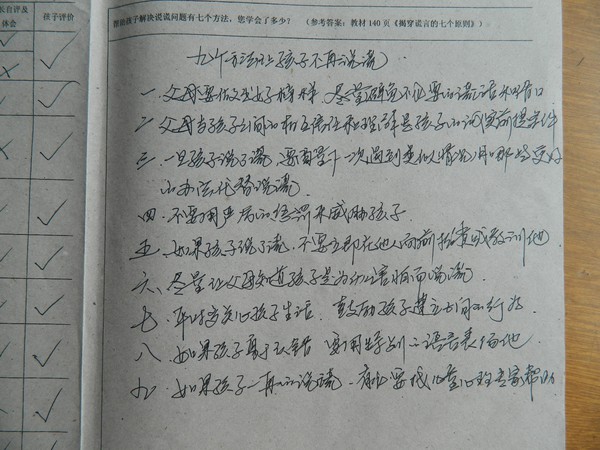 长自评及
体会
孩子评价
帮助孩子解决说谎问题有七个方法，您学会了多少？ （参考答案：教材140页《揭穿谎言的七个原则》）
九个方法让孩子不再说谎
一 父母要做出好榜样 尽量避免不必要的谎话和借口
二 父母与孩子之间的相互信任和理解是孩子的说实前提条件
三 一旦孩子说了谎，要教导下一次遇到类似情况用哪些更好
的办法代替说谎
四、不要用严厉的惩罚来威胁孩子
五、如果孩子说了谎，不要立即在他人面前指责或教训他
六、尽量让父母知道孩子是为什么害怕而说谎
七、平时多关心孩子生活 鼓励孩子建立之间的行为
八、如果孩子勇于认错 要用特别的语言表扬他
九、如果孩子一再的说谎 有必要找儿童心理专家帮助